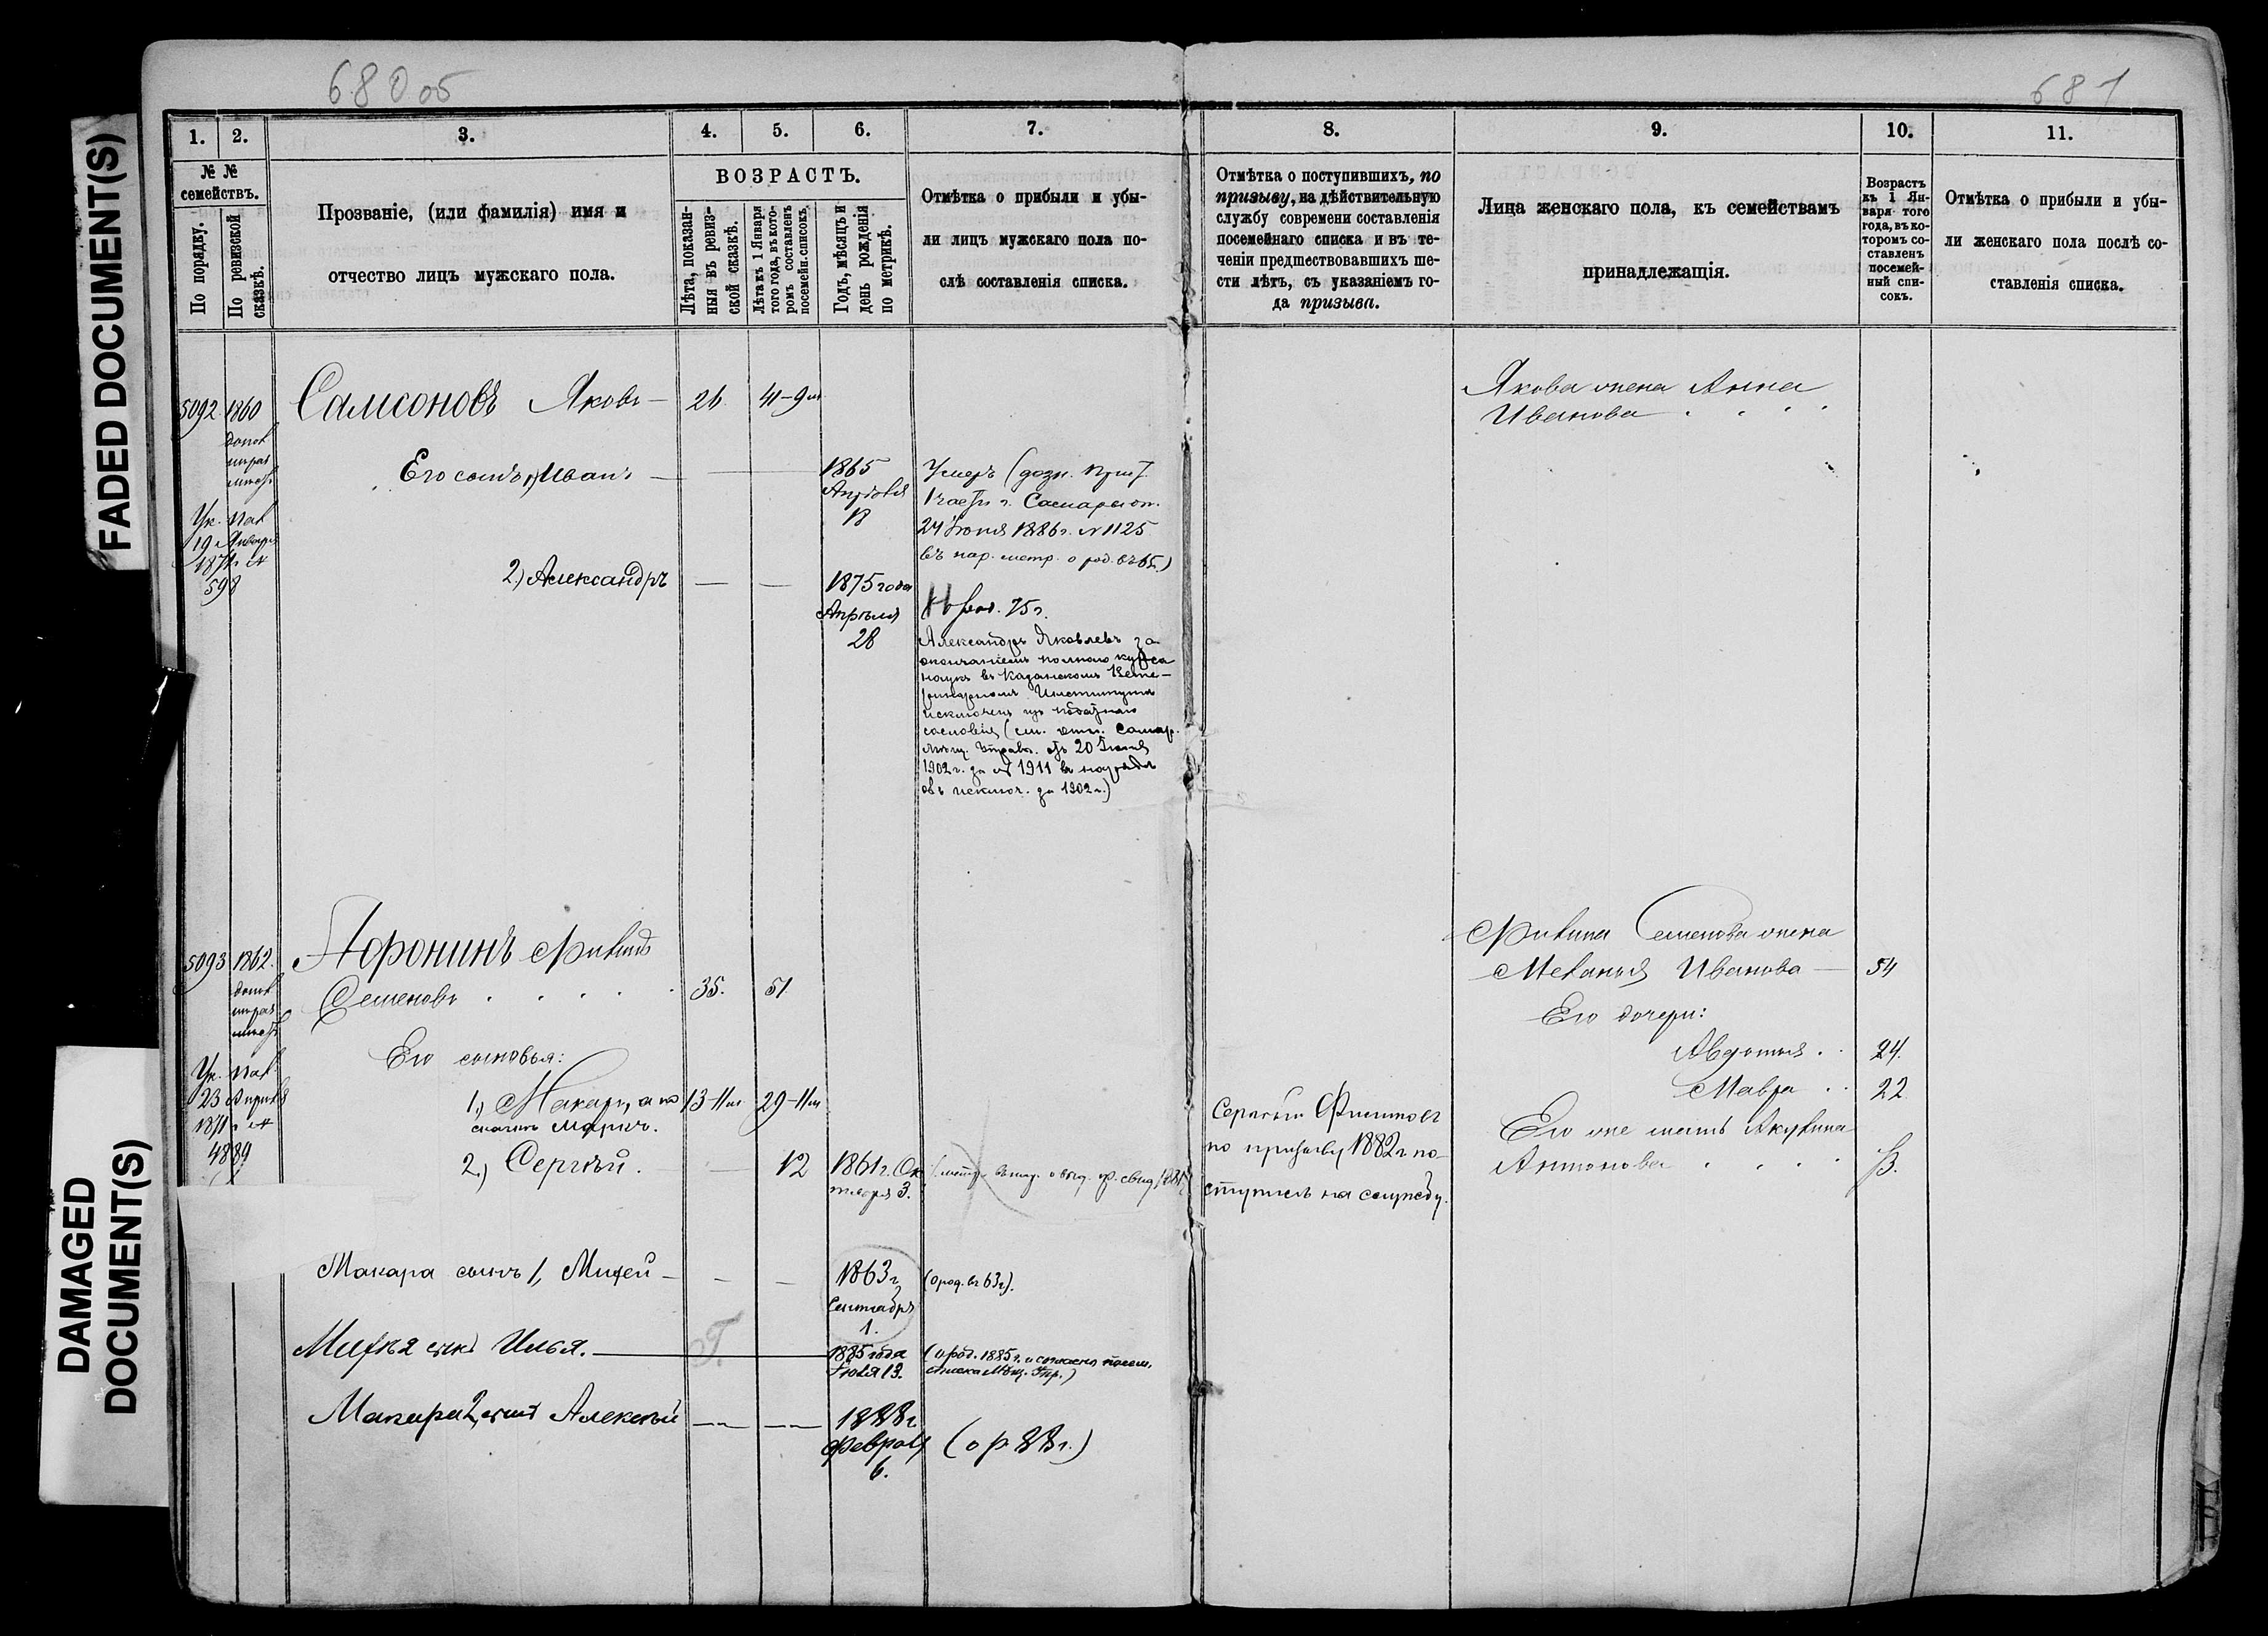 680 об
681
FADED DOCUMENT(S)
DAMAGED
DOCUMENT(S)
1.
2.
3.
4.
5.
6.
7.
8.
9.
10.
11.
№ №
семействъ.
По порядку.
По ревизской
сказкѣ.
Прозваніе, (или фамилія) имя и
отчество лицъ мужскаго пола.
ВОЗРАСТЪ.
Лѣта, показан-
ныя въ ревиз-
ской сказкѣ.
Лѣта къ 1 Января
того года, въ кото-
ромъ составленъ
посемейн. списокъ.
Годъ, мѣсяцъ и
день рожденія
по метрикѣ.
Отмѣтка о прибыли и убы-
ли лицъ мужскаго пола по-
слѣ составленія списка.
Отмѣтка о поступившихъ, по
призыву, на дѣйствительную
службу современи составленія
посемейнаго списка и въ те-
ченіи предшествовавшихъ ше-
сти лѣтъ, съ указаніемъ го-
да призыва.
Лица женскаго пола, къ семействамъ
принадлежащія.
Возрастъ
къ 1 Ян-
варя того
года, въ ко-
торомъ со-
ставленъ
посемей-
ный спи-
сокъ.
Отмѣтка о прибыли и убы-
ли женскаго пола послѣ со-
ставленія списка.
5092 1860 Самсоновъ Яковъ — 26 41-9м
Ук. Пал
19 Января
1871 г. №
598
Его сынъ 1) Иванъ —
1865
Апрѣля
18
Умеръ (дозн. Прист.
1 части г. Самары от.
24 Іюня 1886 г. № 1125
въ нар. метр. о род. въ 65.)
2.) Александръ — —
1875 года
Апрѣля
28
О род. 75 г.
Александръ Яковлевъ за
окончаніемъ полнаго курса
наукъ въ Казанскомъ Вете-
ринарномъ Институтѣ
исключенъ изъ податнаго
сословія (см. отн. Самар.
Мѣщ. Управы. отъ 20 Іюня
1902 г. за № 1911 въ нарядѣ
объ исключ. за 1902 г.)
Якова жена Анна
Иванова
5093 1862. Афонинъ Филипъ
Семеновъ 35. 51.
Ук. Пал.
23 Апрѣля
1871 г. №
4889
Его сыновья:
1.) Макаръ, а по
сказкѣ Маркъ. 13-11м 29-11м
2.) Сергѣй. — 12
1861 г. Ок
тября 3.
Сергѣй Филиповъ
по призыву 1882 г. по-
ступилъ на службу.
Филипа Семенова жена
Меланья Иванова — 54
Его дочери:
Авдотья 24.
Мавра 22
Его же мать Акулина
Антонова
Макара сынъ 1, Михей — — —
1863 г
Сентябр
1.
(о род. въ 63 г.).
Михѣя сынъ Илья.
1885 года
Іюля 13.
(о род. 1885 г. и согласно посем.
списка Мѣщ. Упр.)
Макара 2, сынъ Алексѣй — —
1888 г
Феврал
6.
(о р 88 г.)